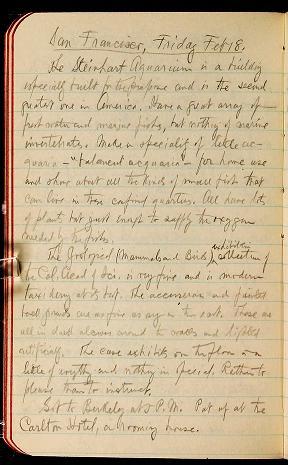 San Francisco, Friday Feb 18.
The Steinhart Aquarium is a building
especially built for the purpose and is the second
greatest one in America. Have a great array of
fresh water and marine fishes, but nothing of marine
invertebrates. Make a specialty of little ac-
quaria - "balanced acquaria" - for home use
and show about all the kinds of small fish that
can live in these confined quarters. All have lots
of plants but just enough to supply the oxygen
needed by the fishes.
The Zoological (Mammals and Birds) exhibition collection of
the Cal. Acad of Sci. is very fine and is modern
taxidermy at its best. The accessories and painted
back grounds are as fine as any in the east. These are
all in dark alcoves around the walls and lighted
artificially. The case exhibits on the floor are a
little of everything and nothing in special. Rather to
please than to instruct.
Got to Berkeley at 5 P.M. Put up at the
Carlton Hotel, a rooming house.